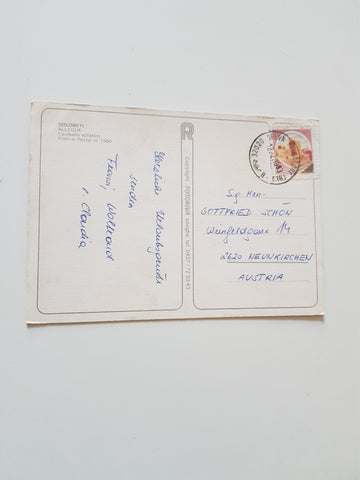 DOLOMITI
ALLEGHE
Carosello sciistico
Piani di Pezzè m. 1500
Herzliche Urlaubsgrüße
senden
Wallraud
Claudia
R
Copyright FOTORIVA alleghe, tel. 0437/723343
Sig. Herr
GOTTFRIED SCHÖN
14
2620 NEUNKIRCHEN
AUSTRIA